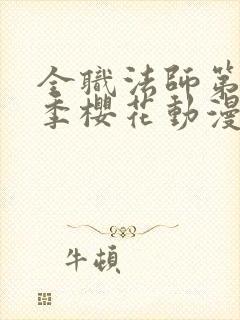 全職法師第
季櫻花動漫
牛頓